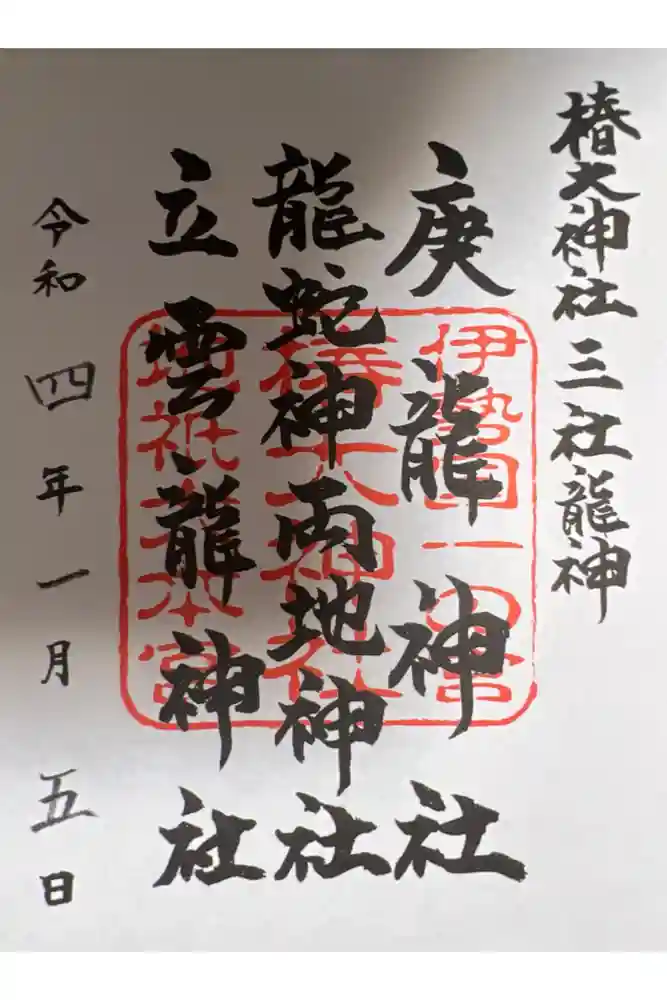 椿大神社 三社龍神
庚龍神社
龍蛇神両地神社
立雲龍神社
伊勢国一の宮
椿大神社
地祇大本宮
令和四年一月五日